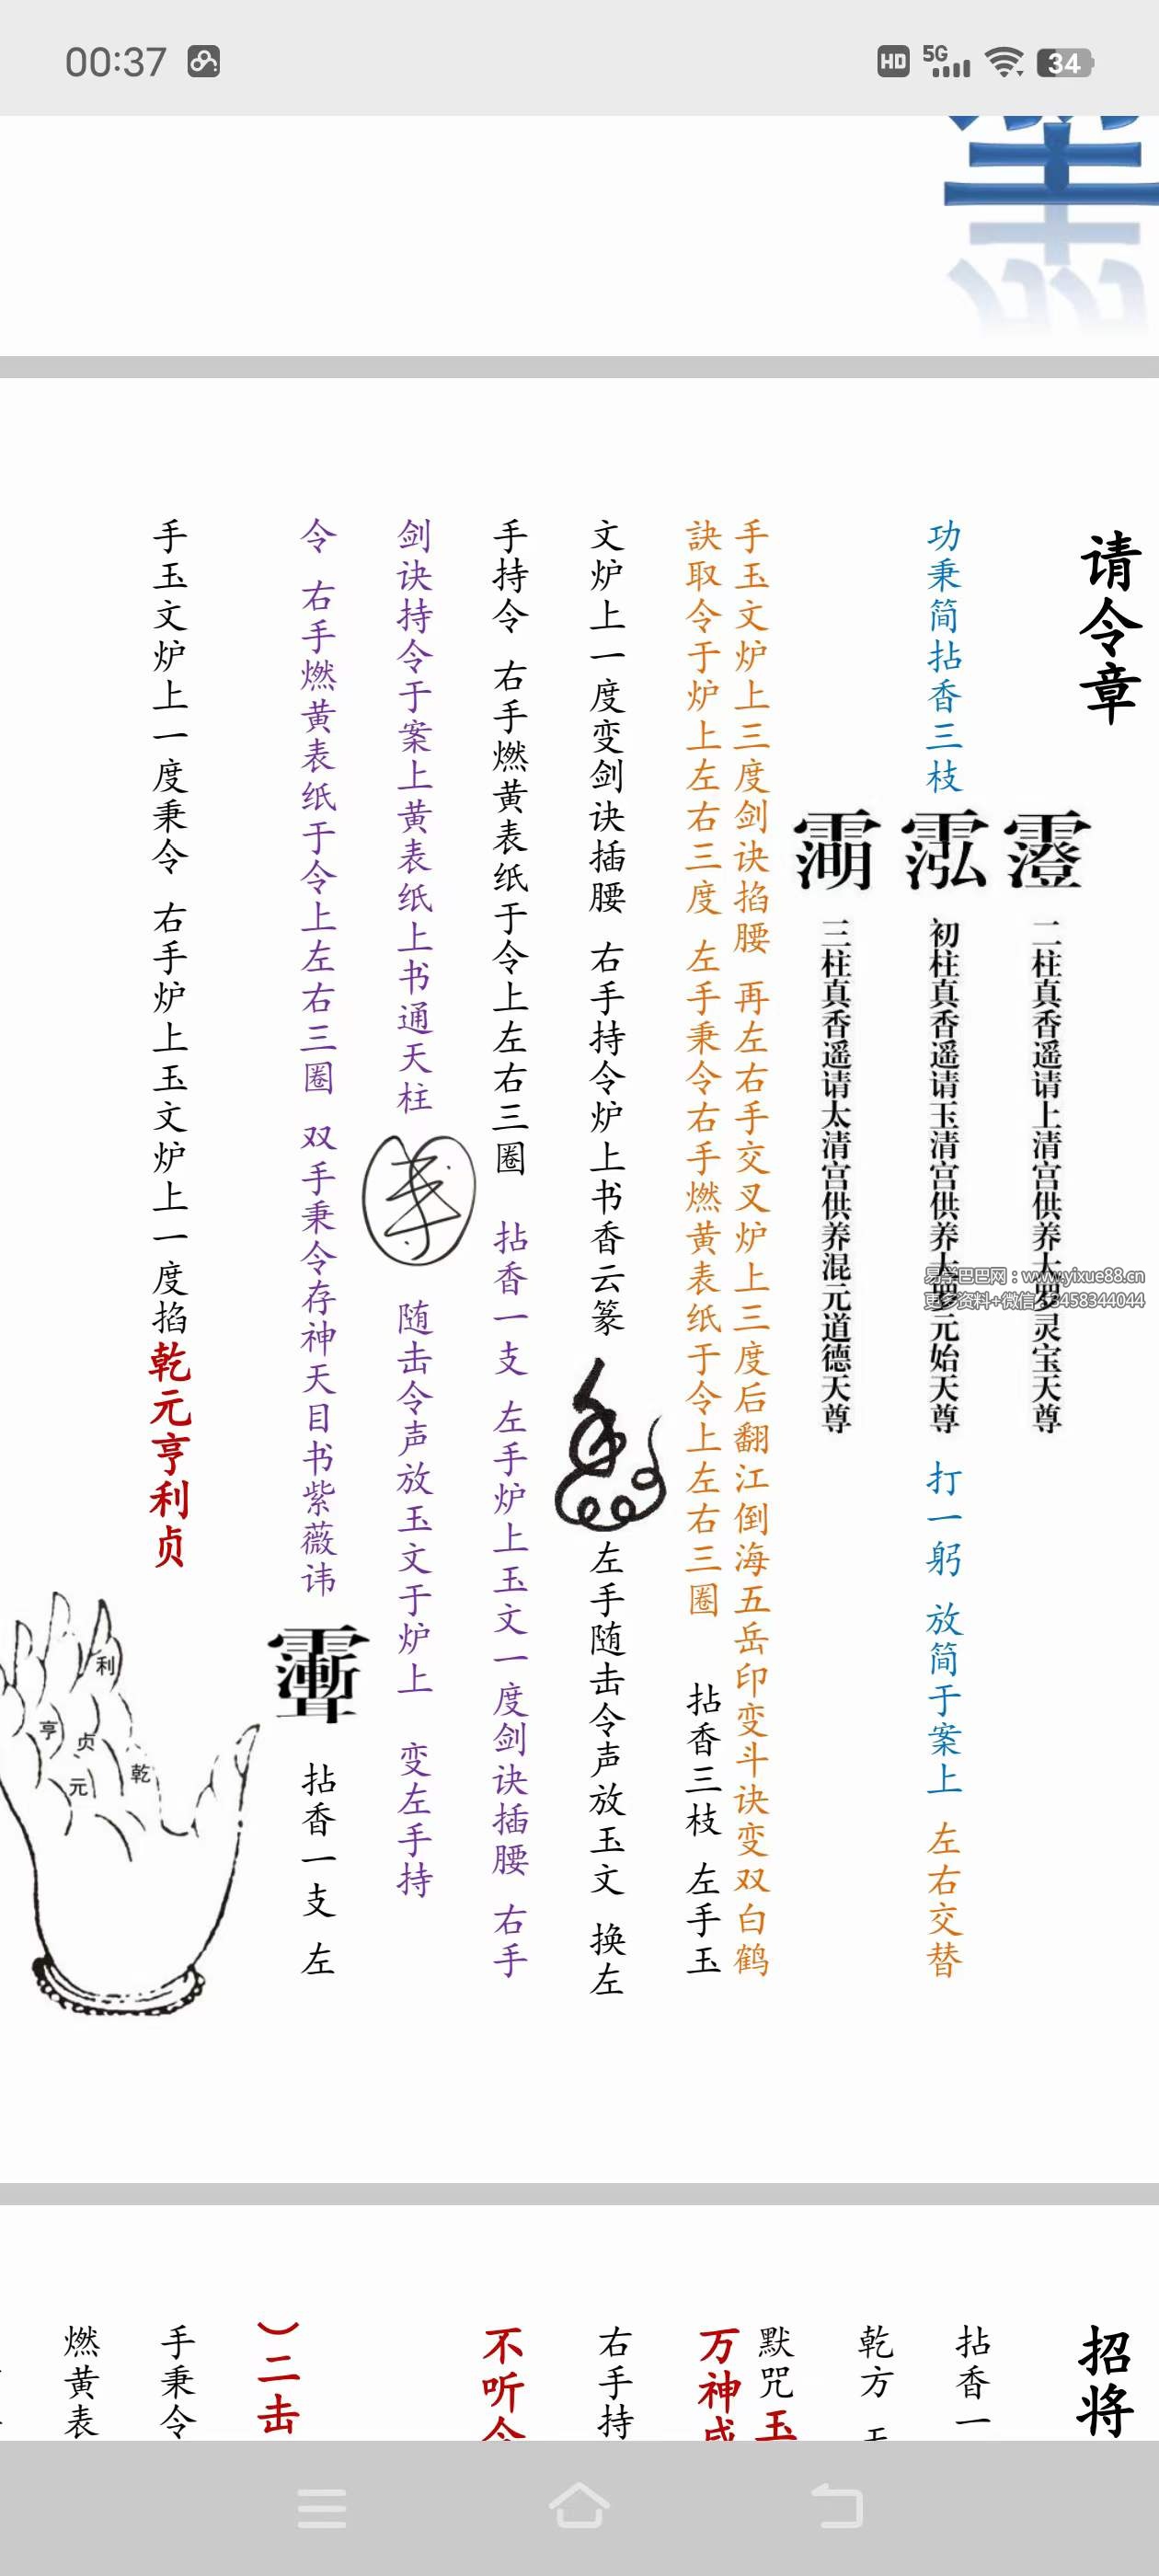 00:37
HD 5G 34
请令章
二柱真香遥请上清宫供养大罗灵宝天尊
功秉简拈香三枝
初柱真香遥请玉清宫供养大罗元始天尊
打一躬 放简于案上 左右交替
三柱真香遥请太清宫供养混元道德天尊
手玉文炉上三度剑诀掐腰 再左右手交叉炉上三度后翻江倒海五岳印变斗诀变双白鹤
訣取令于炉上左右三度 左手秉令右手燃黄表纸于令上左右三圈 拈香三枝 左手玉
文炉上一度变剑诀插腰 右手持令炉上书香云篆
左手随击令声放玉文 换左
手持令 右手燃黄表纸于令上左右三圈 拈香一支 左手炉上玉文一度剑诀插腰 右手
剑诀持令于案上黄表纸上书通天柱
随击令声放玉文于炉上 变左手持
令 右手燃黄表纸于令上左右三圈 双手秉令存神天目书紫薇讳
拈香一支 左
手玉文炉上一度秉令 右手炉上玉文炉上一度掐乾元亨利贞
利
亨
贞
元
乾
易学巴巴网：www.yixue88.cn
更多资料+微信：3458344044
招将
拈香一
乾方
默咒玉
万神咸
右手持
不听令
）二击
手秉令
燃黄表